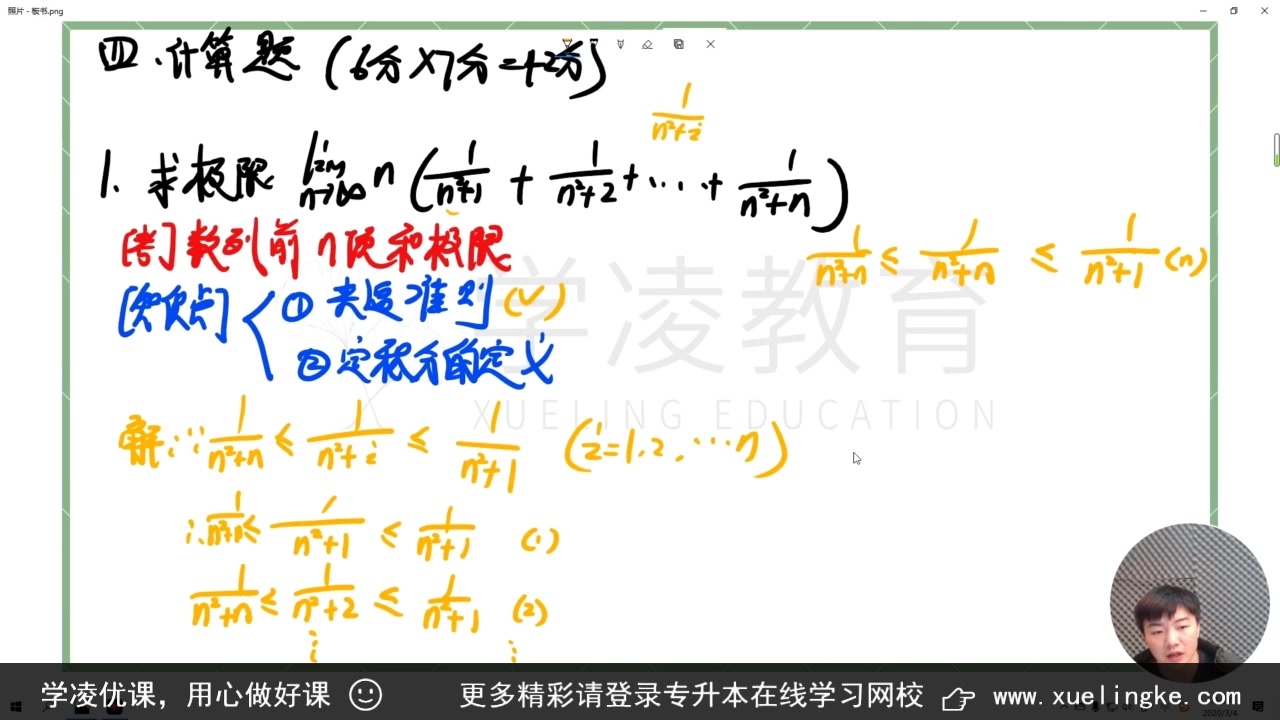 照片 - 板书.png
四.计算题 (6分×7分=42分)
1/(n²+i)
1. 求极限 lim n→∞ n(1/(n²+1) + 1/(n²+2) + ... + 1/(n²+n))
[考] 数列前n项和极限
1/(n²+n) ≤ 1/(n²+n) ≤ 1/(n²+1) (n)
[知识点] ① 夹逼准则 (√)
② 定积分的定义
学凌教育
XUELING EDUCATION
解: ∵ 1/(n²+n) ≤ 1/(n²+i) ≤ 1/(n²+1) (i=1.2.…n)
∴ 1/(n²+n) ≤ 1/(n²+1) ≤ 1/(n²+1) (1)
1/(n²+n) ≤ 1/(n²+2) ≤ 1/(n²+1) (2)
⋮ ⋮
学凌优课，用心做好课 更多精彩请登录专升本在线学习网校 www.xuelingke.com
2020/3/4